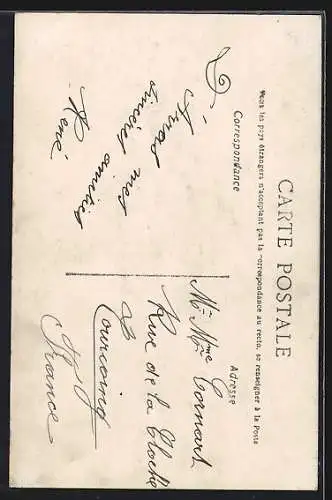 CARTE POSTALE
Tous les pays étrangers n'acceptant pas la correspondance au recto, se renseigner à la Poste
Correspondance
Adresse
mes
sincères
amitiés
René
Mr Mme Cornart
Rue de la Cloche
à
Tourcoing
France